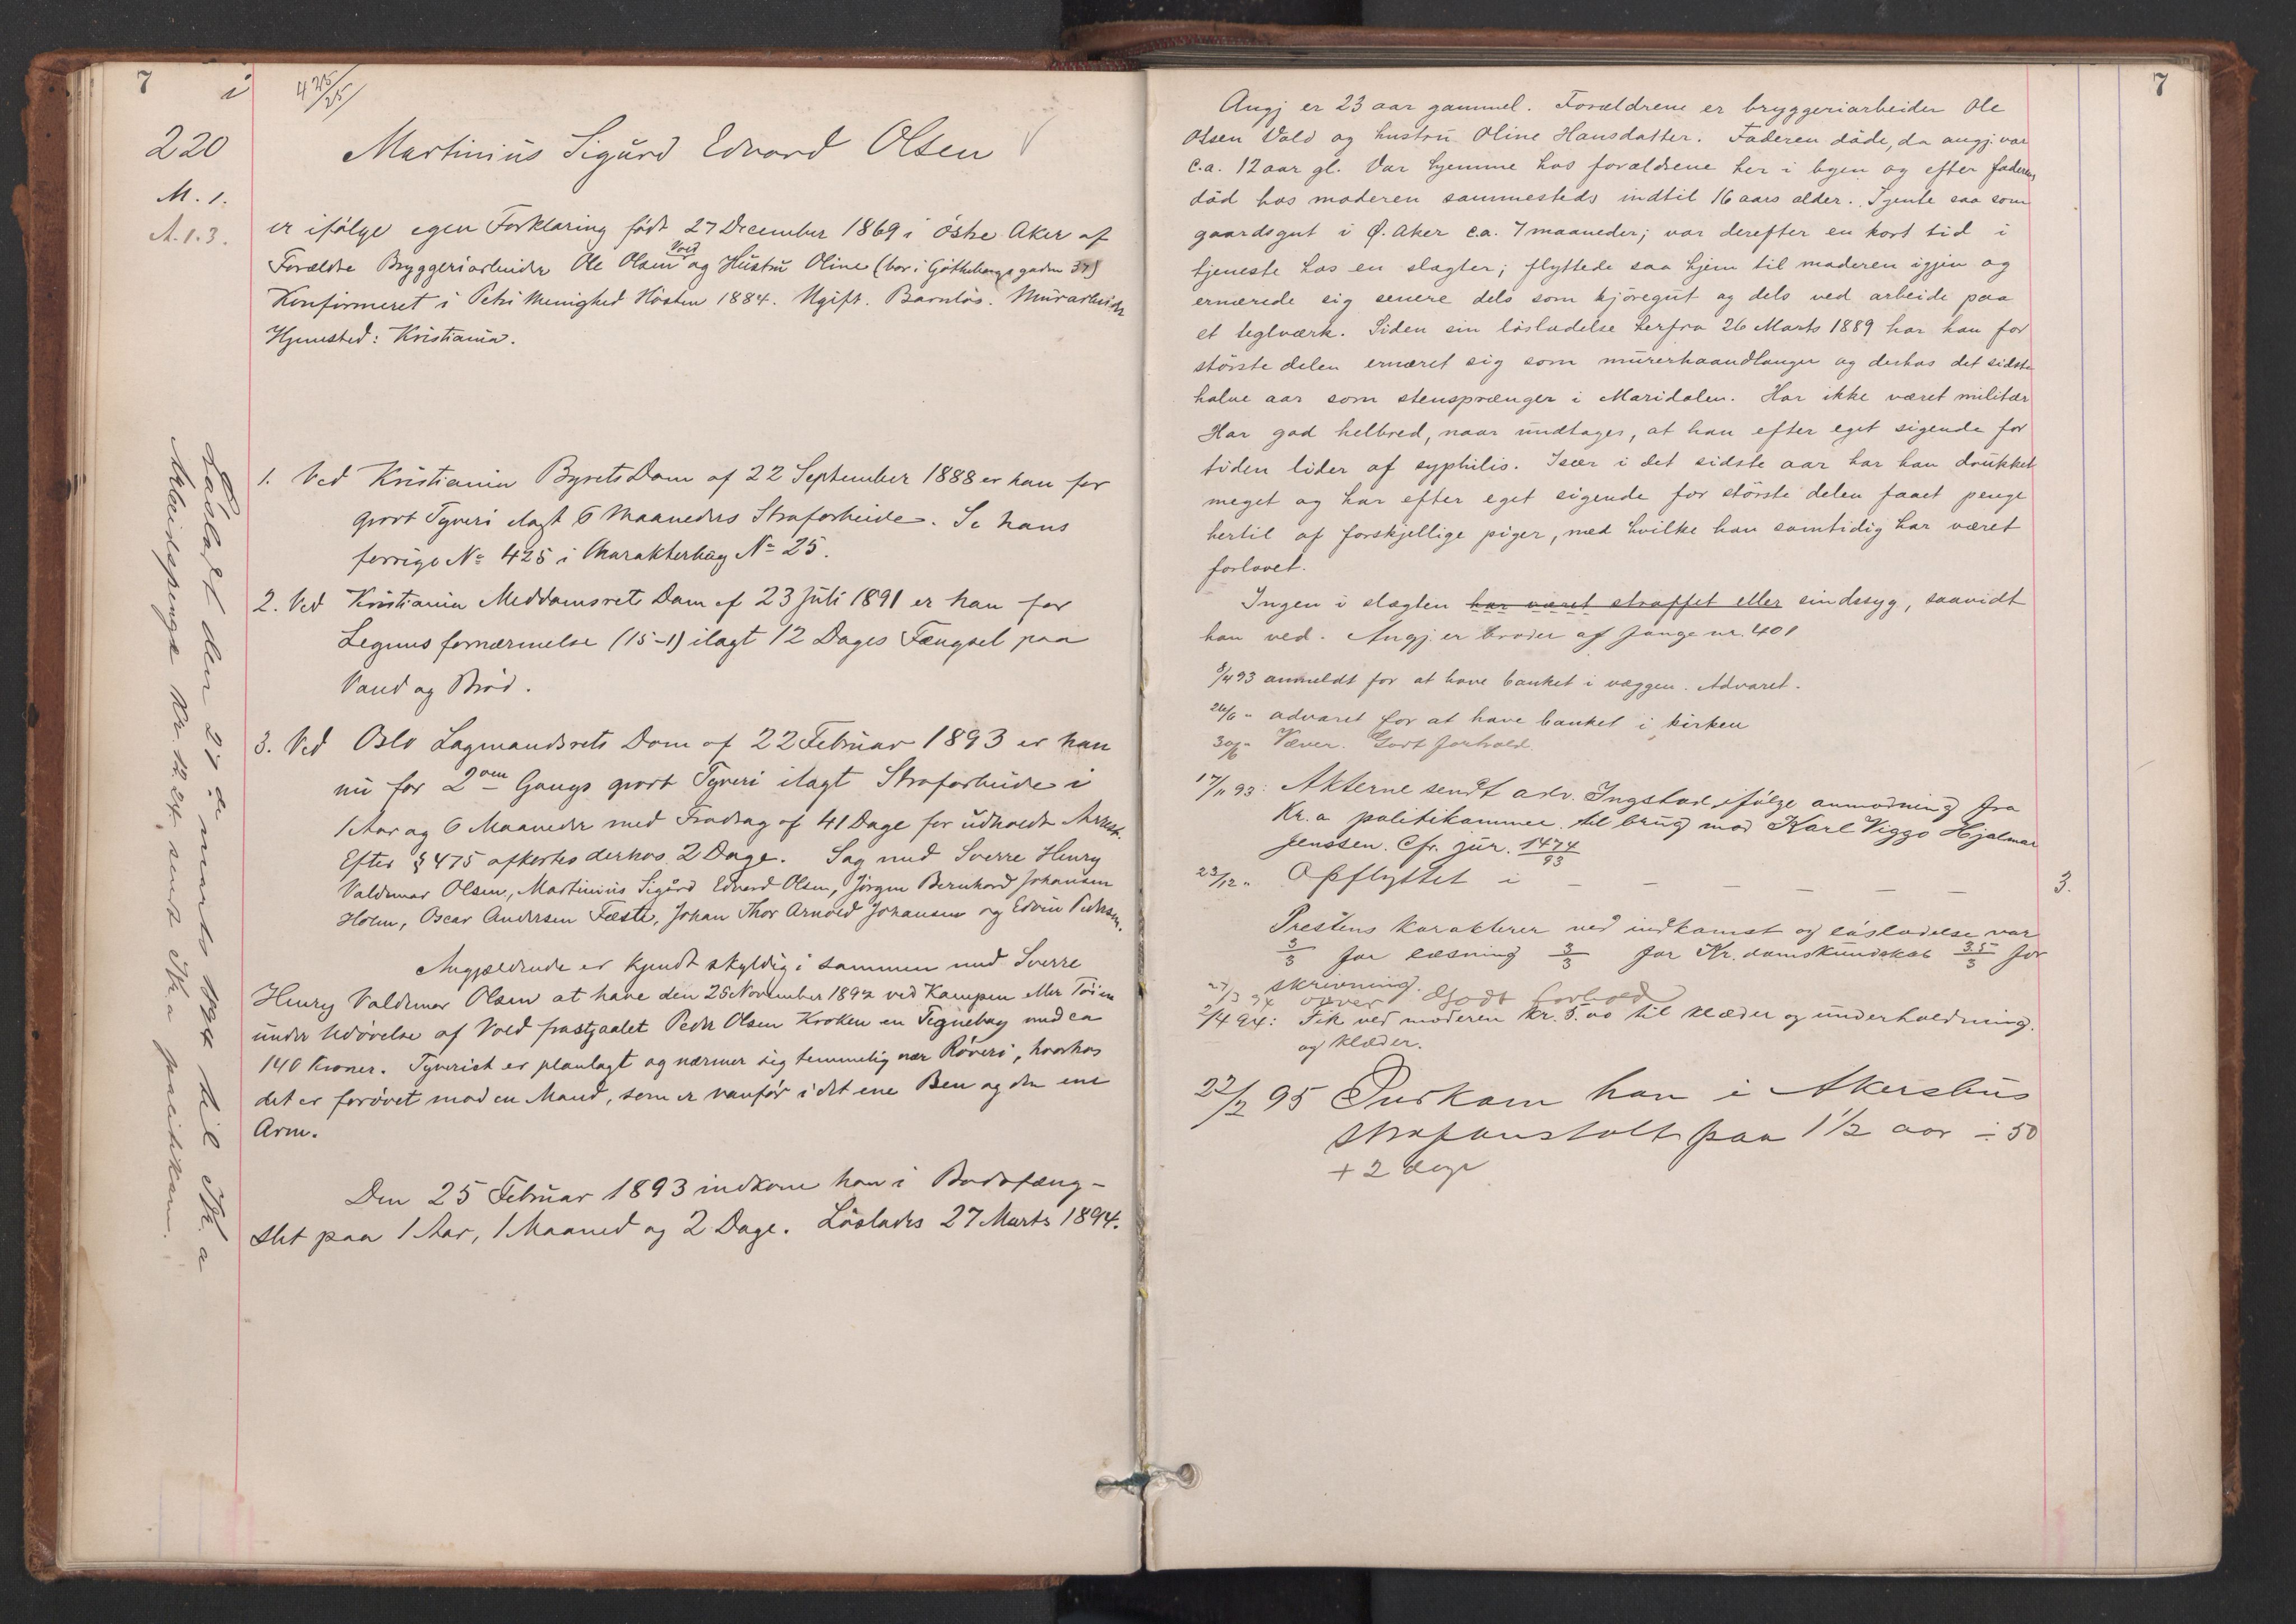 7
i
425/25
220
Martinius Sigurd Edvard Olsen
M. 1.
A. 1. 3.
er ifølge egen Forklaring født 27 December 1869 i østre Aker af
Forældre Bryggeriarbeider Ole Olsen Vold og Hustru Oline (bor i Gøtheborgsgaden 37)
Konfirmeret i Petri Menighed Høsten 1884. Ugift. Barnløs. Murarbeider
Hjemsted: Kristiania.
1. Ved Kristiania Byrets Dom af 22 September 1888 er han for
grovt Tyveri ilagt 6 Maaneders Strafarbeide. Se hans
forrige No 425 i Charakterbog No 25.
2. Ved Kristiania Meddomsrets Dom af 23 Juli 1891 er han for
Legemsfornærmelse (15-1) ilagt 12 Dages Fængsel paa
Vand og Brød.
3. Ved Oslo Lagmandsrets Dom af 22 Februar 1893 er han
nu for 2den Gangs grovt Tyveri ilagt Strafarbeide i
1 Aar og 6 Maaneder med Fradrag af 41 Dage for udholdt Arrest.
Efter § 475 afkortes derhos 2 Dage. Sag mod Sverre Henry
Valdemar Olsen, Martinius Sigurd Edvard Olsen, Jørgen Bernhard Johansen
Holm, Oscar Andersen Fæste, Johan Thor Arnold Johansen og Edvin Pedersen.
Angjældende er kjendt skyldig i sammen med Sverre
Henry Valdemar Olsen at have den 25 November 1892 ved Kampen eller Tøien
under Udøvelse af Vold frastjaalet Peder Olsen Kroken en Tegnebog med ca
140 Kroner. Tyveriet er planlagt og nærmer sig temmelig nær Røveri, hvorhos
det er forøvet mod en Mand, som er vanfør i det ene Ben og den ene
Arm.
Den 25 Februar 1893 indkom han i Bodsfæng-
slet paa 1 Aar, 1 Maaned og 2 Dage. Løslades 27 Marts 1894.
Løsladt den 27de marts 1894 til Kr.a
Arbeidspenge Kr. 12.24 sendt Kr.a politikam.
7
Angj er 23 aar gammel. Forældrene er bryggeriarbeider Ole
Olsen Vold og hustru Oline Hansdatter. Faderen døde, da angj. var
c.a. 12 aar gl. Var hjemme hos forældrene her i byen og efter faderens
død hos moderen sammesteds indtil 16 aars alder. Tjente saa som
gaardsgut i Ø. Aker c.a. 7 maaneder; var derefter en kort tid i
tjeneste hos en slagter; flyttede saa hjem til moderen igjen og
ernærede sig senere dels som kjøregut og dels ved arbeide paa
et teglværk. Siden sin løsladelse herfra 26 Marts 1889 har han for
største delen ernæret sig som murerhaandlanger og derhos det sidste
halve aar som stensprænger i Maridalen. Har ikke været militær
Har god helbred, naar undtages, at han efter eget sigende for
tiden lider af syphilis. Især i det sidste aar har han drukket
meget og har efter eget sigende for største delen faaet penge
hertil af forskjellige piger, med hvilke han samtidig har været
forlovet.
Ingen i slægten har været straffet eller sindssyg, saavidt
han ved. Angj. er broder af fange nr. 401
8/4 93 anmeldt for at have banket i væggen. Advaret.
26/6 " advaret for at have banket i kirken
30/6 " Væver. Godt forhold.
17/11 93: Akterne sendt adv. Ingstad ifølge anmodning fra
Kr.a politikammer til brug mod Karl Viggo Hjalmar
Jenssen. Cfr. jür. 1474/93
23/12 " Opflyttet i – – – – – – 3.
Prestens karakterer ved indkomst og løsladelse var
3/3 for læsning 3/3 for Kr.domskundskab 3.5/3 for
skrivning.
27/3 94 Væver Godt forhold
2/4 94: Fik ved moderen kr. 5.00 til klæder og underholdning.
og klæder.
22/2 95 Indkom han i Akershus
Strafanstalt paa 1 1/2 aar ÷ 50
+ 2 dage